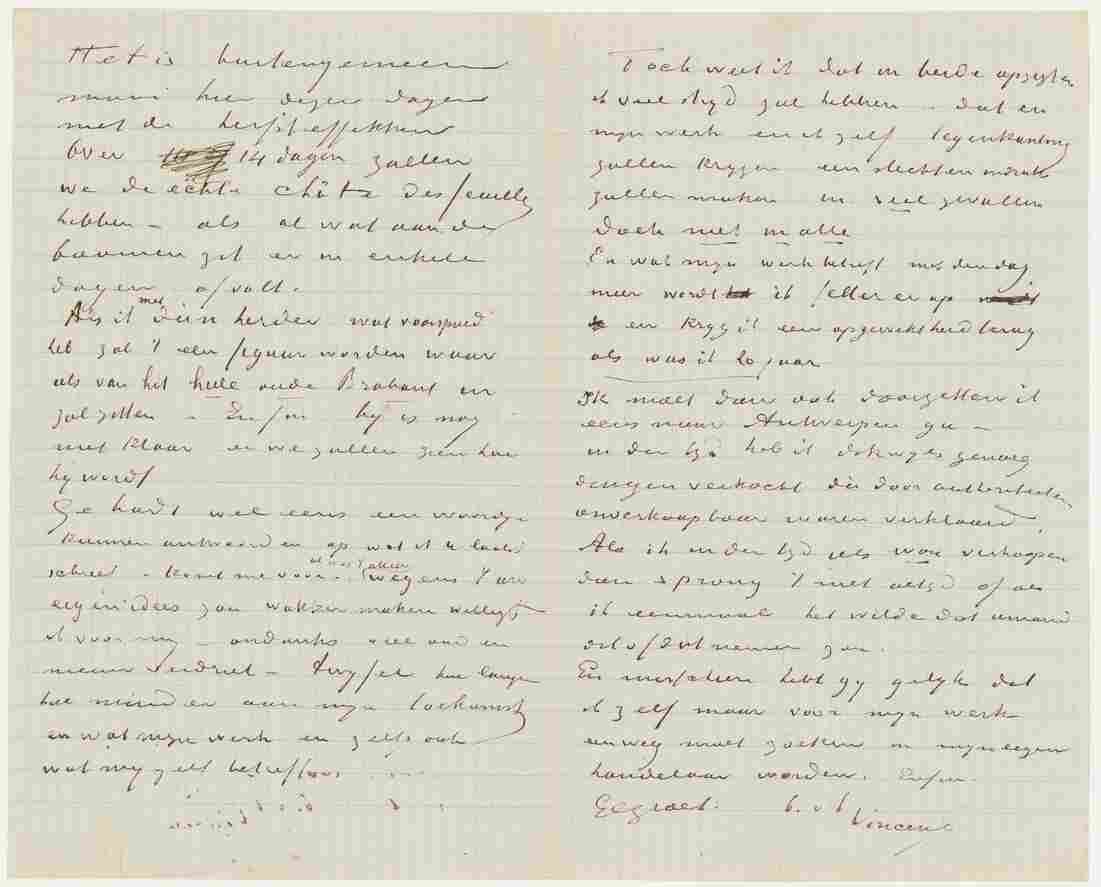 Het is buitengemeen
mooi hier dezer dagen
met de herfsteffekten
Over 14 dagen zullen
we de echte chûte des feuilles
hebben – als al wat aan de
boomen zit er in enkele
dagen afvalt.
Als ik met dien herder wat voorspoed
heb zal 't een figuur worden waar
iets van het heele oude Brabant in
zal zitten – Enfin hij is nog
niet klaar en we zullen zien hoe
hij wordt
Ge hadt wel eens een woordje
kunnen antwoorden op wat ik u laatst
schreef – komt me voor – al was 't alleen wegens 't uw
eigen idees zou wakker maken welligt
ik voor mij – ondanks veel oud en
nieuw verdriet – twijfel hoe langer
hoe minder aan mijn toekomst
en wat mijn werk en zelfs ook
wat mij zelf betreft
Toch weet ik dat in beide opzigten
ik veel strijd zal hebben – dat en
mijn werk en ik zelf tegenkanting
zullen krijgen een slechten indruk
zullen maken in veel gevallen
doch niet in alle
En wat mijn werk betreft met den dag
meer word ik feller er op
en krijg ik een opgewektheid terug
als was ik 20 jaar
Ik moet dan ook doorzetten ik
eens naar Antwerpen ga –
in der tijd heb ik dikwijls genoeg
dingen verkocht die door authoriteiten
onverkoopbaar waren verklaard.
Als ik in der tijd iets wou verkoopen
dan sprong 't niet altijd of als
ik eenmaal het wilde dat iemand
dit of dat nemen zou.
En misschien hebt gij gelijk dat
ik zelf maar voor mijn werk
een weg moet zoeken en mijn eigen
handelaar worden. Enfin.
Gegroet. t. à t.
Vincent